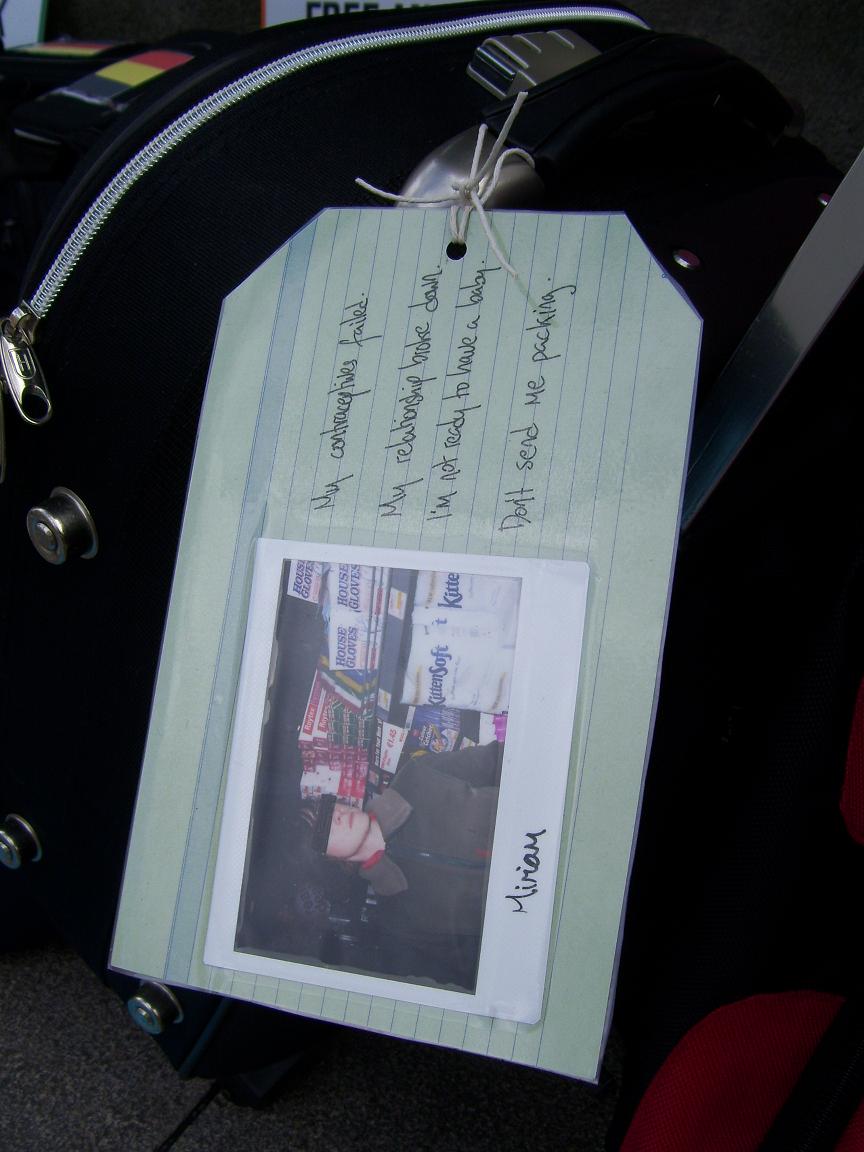 My contraceptives failed.
My relationship broke down.
I'm not ready to have a baby.
Don't send me packing.
HOUSE GLOVES
HOUSE GLOVES
HOUSE GLOVES
KittenSoft
Kitte
€1.45
Miriam